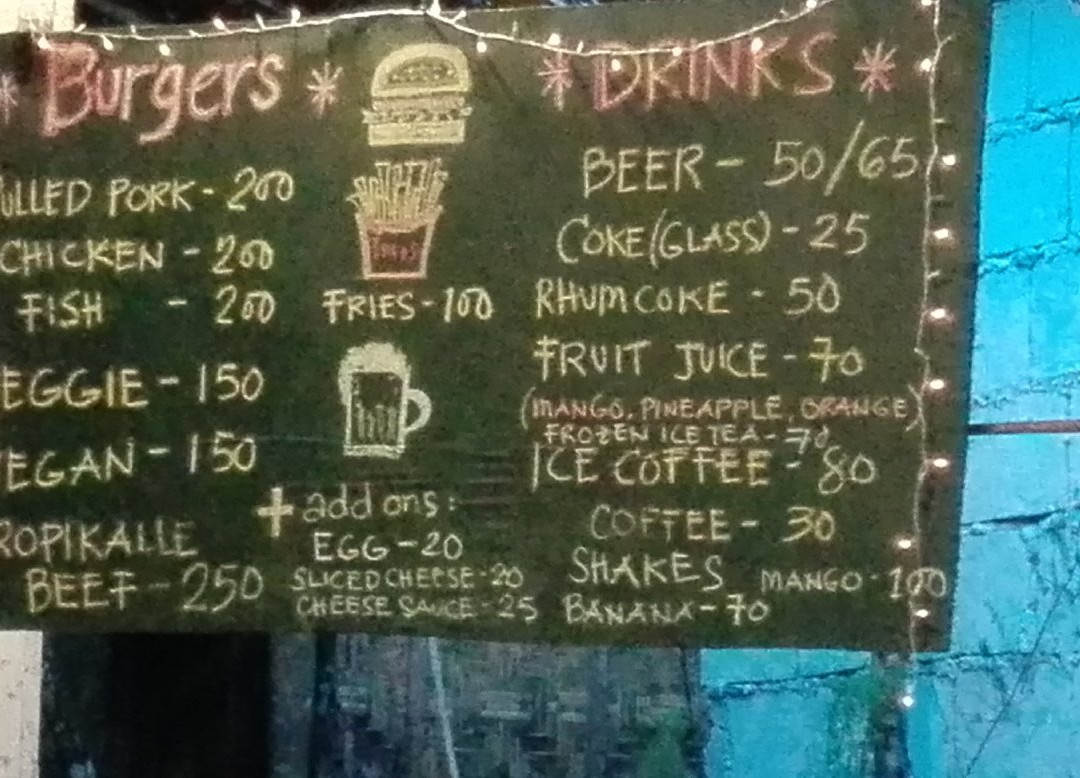 * Burgers *
ULLED PORK - 200
CHICKEN - 200
FISH - 200
EGGIE - 150
EGAN - 150
ROPIKALLE
BEEF - 250
FRIES - 100
+ add ons:
EGG - 20
SLICED CHEESE - 20
CHEESE SAUCE - 25
* DRINKS *
BEER - 50/65
COKE (GLASS) - 25
RHUM COKE - 50
FRUIT JUICE - 70
(MANGO, PINEAPPLE, ORANGE)
FROZEN ICE TEA - 70
ICE COFFEE - 80
COFFEE - 30
SHAKES MANGO - 100
BANANA - 70